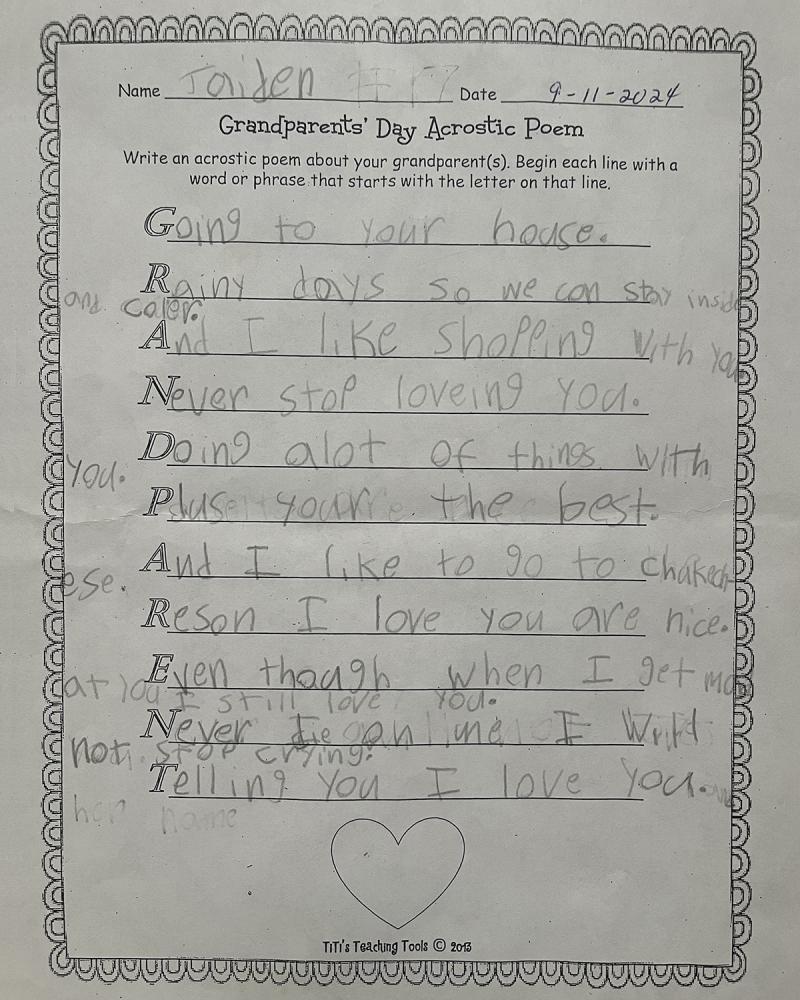 Name Jaiden #17 Date 9-11-2024
Grandparents' Day Acrostic Poem
Write an acrostic poem about your grandparent(s). Begin each line with a
word or phrase that starts with the letter on that line.
Going to your house.
Rainy days so we can stay inside
and coler.
And I like shopping with you
Never stop loveing you.
Doing alot of things with
you.
Pluse your the best.
And I like to go to chakech
ese.
Reson I love you are nice.
Even though when I get mad
at you I still love you.
Never die on me I will
not stop crying.
Telling you I love you.
her name
TiTi's Teaching Tools © 2013